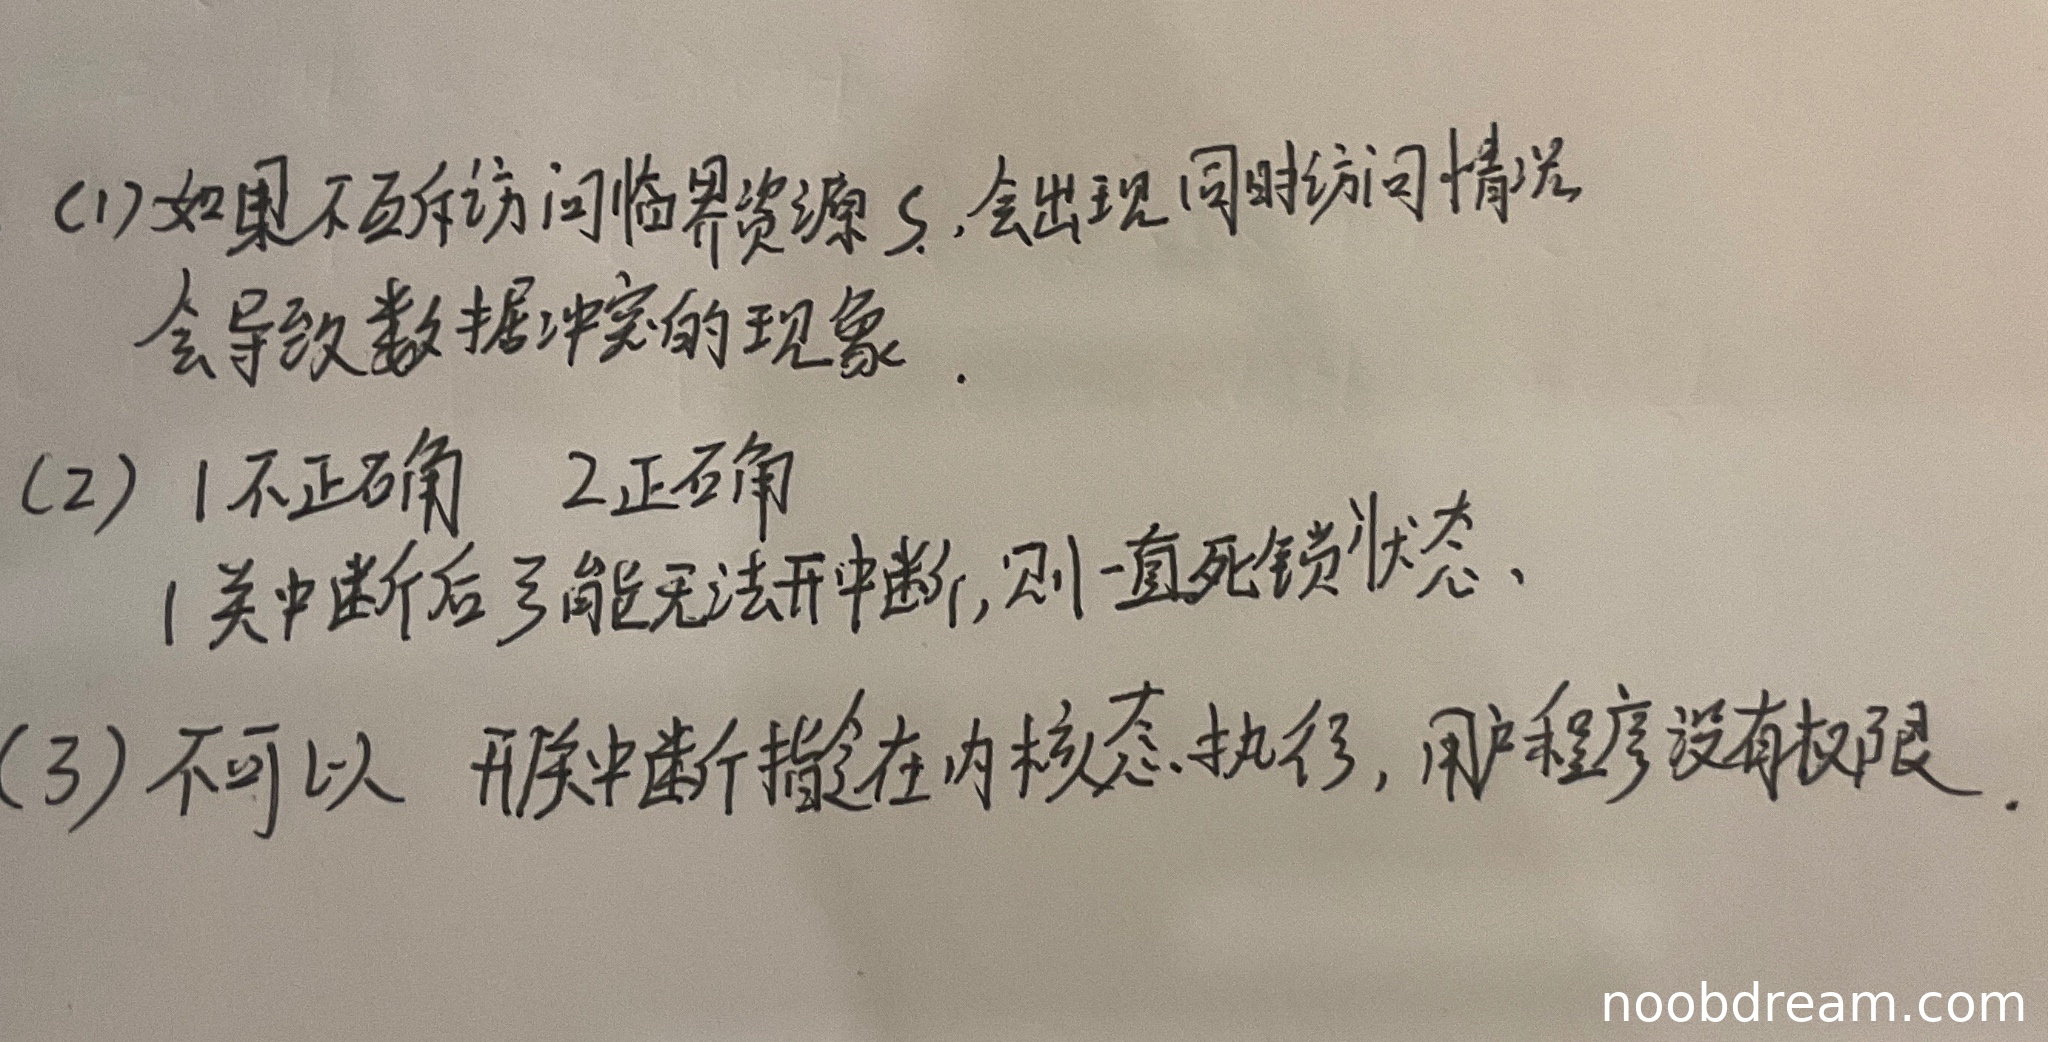 (1) 如果不互斥访问临界资源S.,会出现同时访问情况
会导致数据冲突的现象.
(2) 1不正确 2正确
1关中断后可能无法开中断,则一直死锁状态、
(3) 不可以 开关中断指令在内核态执行,用户程序没有权限.
noobdream.com